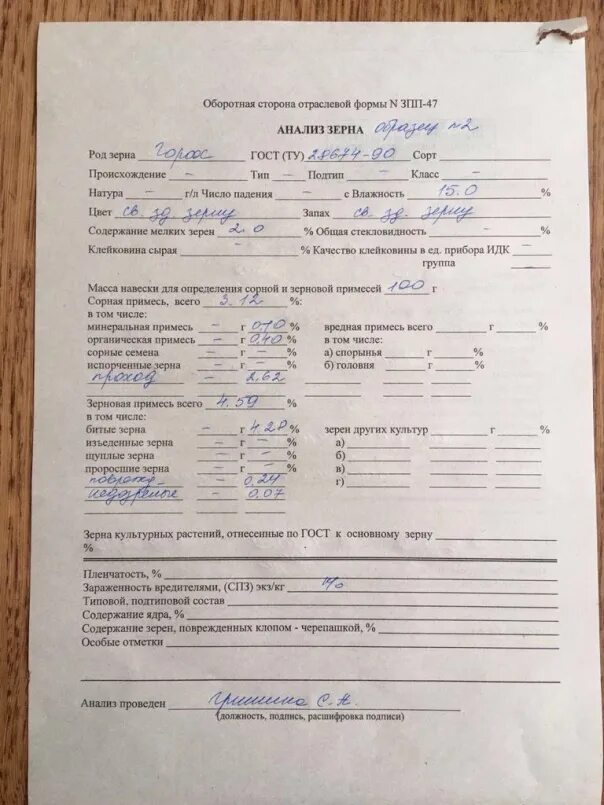 Оборотная сторона отраслевой формы N ЗПП-47
АНАЛИЗ ЗЕРНА образец №2
Род зерна Горох ГОСТ (ТУ) 28674-90 Сорт
Происхождение - Тип - Подтип - Класс -
Натура - г/л Число падения - с Влажность 15.0 %
Цвет св. зд. зерну Запах св. зд. зерну
Содержание мелких зерен 2.0 % Общая стекловидность - %
Клейковина сырая - % Качество клейковины в ед. прибора ИДК -
группа
Масса навески для определения сорной и зерновой примесей 100 г
Сорная примесь, всего 3.12 %:
в том числе:
минеральная примесь - г 0,10 % вредная примесь всего г %
органическая примесь - г 0,40 % в том числе:
сорные семена - г - % а) спорынья г %
испорченные зерна - г - % б) головня г %
проход - 2,62
Зерновая примесь всего 4.59 %
в том числе:
битые зерна - г 4.28 % зерен других культур г %
изъеденные зерна - г - % а)
щуплые зерна - г - % б)
проросшие зерна - г - % в)
поврежд. - 0,24 г)
недозрелые - 0,07
Зерна культурных растений, отнесенные по ГОСТ к основному зерну
%
Пленчатость, %
Зараженность вредителями, (СПЗ) экз/кг н/о
Типовой, подтиповой состав
Содержание ядра, %
Содержание зерен, поврежденных клопом - черепашкой, %
Особые отметки
Анализ проведен Гришина С.Н.
(должность, подпись, расшифровка подписи)